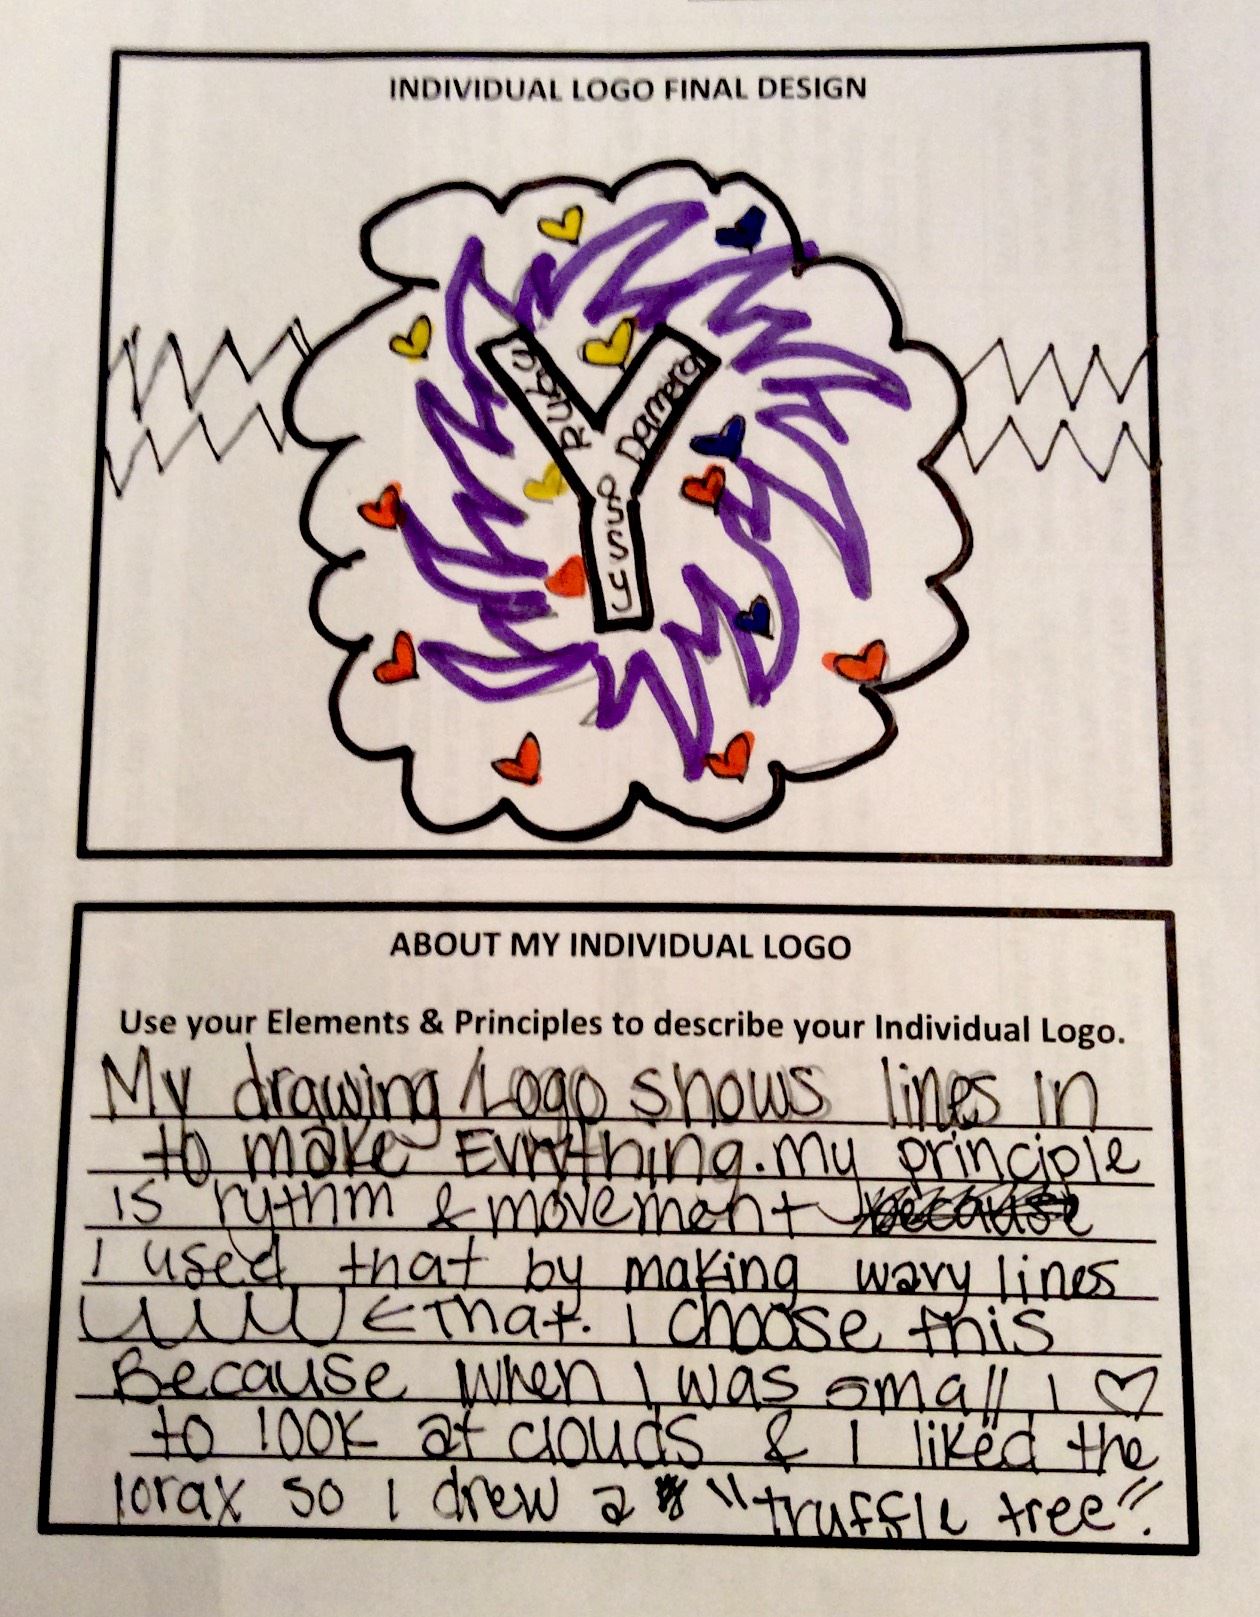 INDIVIDUAL LOGO FINAL DESIGN
Ruby
Damera
ossy
ABOUT MY INDIVIDUAL LOGO
Use your Elements & Principles to describe your Individual Logo.
My drawing/Logo shows lines in
to make Evrything. My principle
is rythm & movement because
I used that by making wavy lines
← That. I choose this
Because when I was small I ♡
to look at clouds & I liked the
lorax so I drew a "truffle tree".